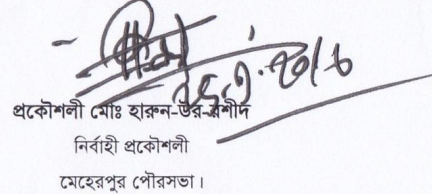 প্রকৌশলী মোঃ হারুন-উর-রশীদ
নির্বাহী প্রকৌশলী
মেহেরপুর পৌরসভা।